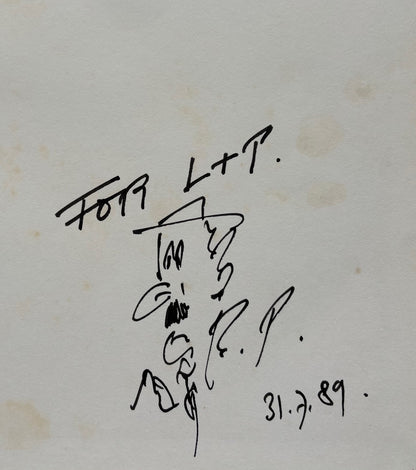 FOR L+P.
R. P.
31.7.89.